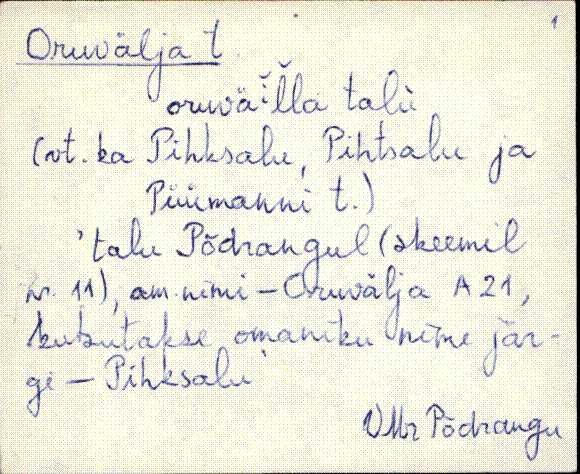 1
Oruvälja t.
oruväǐľľa talù
(vt. ka Pihksalu, Pihtsalu ja
Püümanni t.)
'talu Põdrangul (skeemil
nr. 11), am. nimi – Oruvälja A 21,
kutsutakse omaniku nime jär-
gi – Pihksalu'
VMr Põdrangu